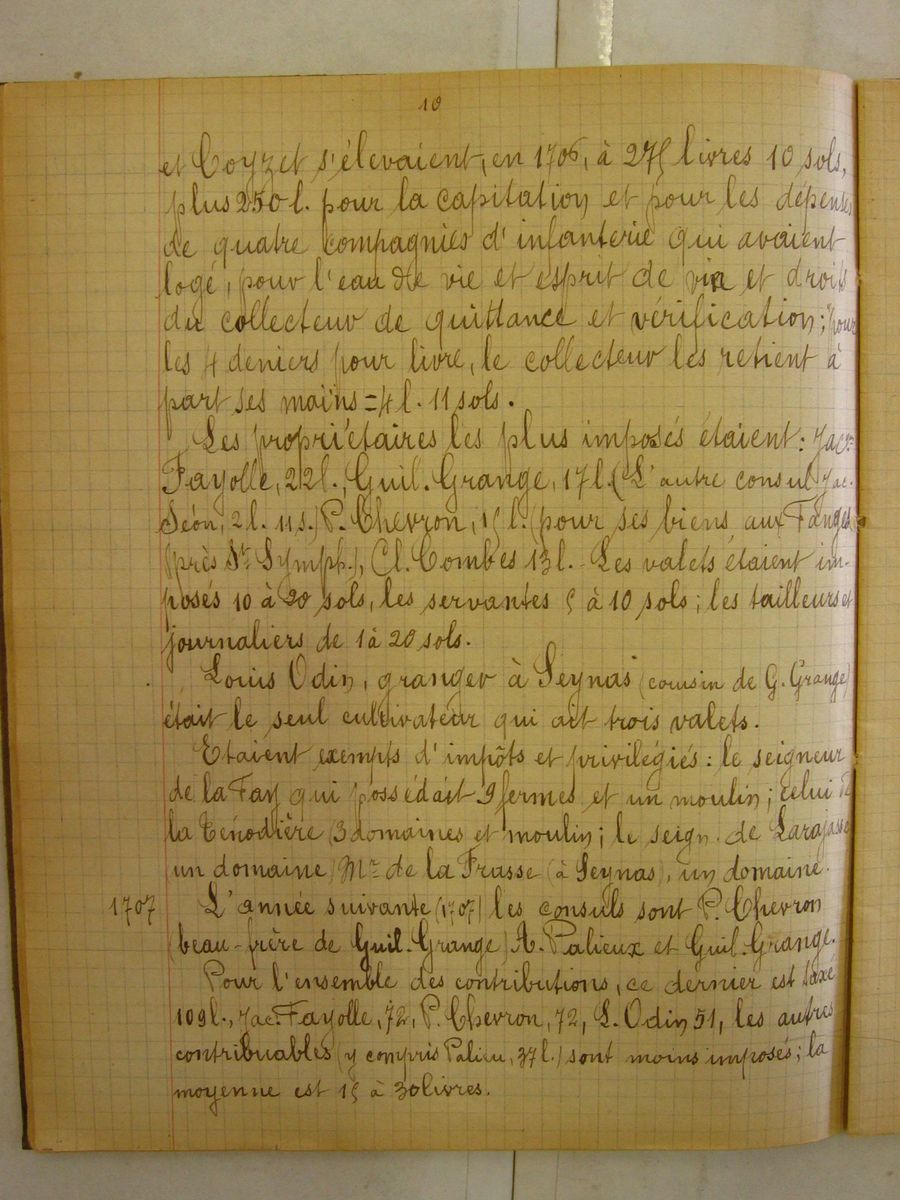 10
et Coyzet s'élevaient, en 1706, à 275 livres 10 sols,
plus 250 l. pour la capitation et pour les dépenses
de quatre compagnies d'infanterie qui avaient
logé, pour l'eau de vie et esprit de vin et droits
du collecteur de quittance et vérification; "pour
les 4 deniers pour livre, le collecteur les retient à
part ses mains = 4 l. 11 sols.
Les propriétaires les plus imposés étaient: Jac.
Fayolle, 22 l., Guil. Grange, 17 l. (L'autre consul Jac.
Séon, 2 l. 11 s.) P. Chevron, 15 l. (pour ses biens aux Fanges,
(près St. Symph.), Cl. Combes 13 l. - Les valets étaient im-
posés 10 à 20 sols, les servantes 5 à 10 sols; les tailleurs et
journaliers de 1 à 20 sols.
Louis Odin, granger à Seynas (cousin de G. Grange)
était le seul cultivateur qui ait trois valets.
Etaient exempts d'impôts et privilégiés: le seigneur
de la Fay qui possédait 9 fermes et un moulin; celui de
la Ténodière (3 domaines et moulin; le seign. de Larajasse
un domaine) Mr. de la Frasse (à Seynas), un domaine.
1707 L'année suivante (1707) les consuls sont P. Chevron
(beau-frère de Guil. Grange) A. Palieux et Guil. Grange.
Pour l'ensemble des contributions, ce dernier est taxé
109 l., Jac. Fayolle, 72, P. Chevron, 72, L. Odin 51, les autres
contribuables (y compris Palieu, 37 l.) sont moins imposés; la
moyenne est 15 à 30 livres.